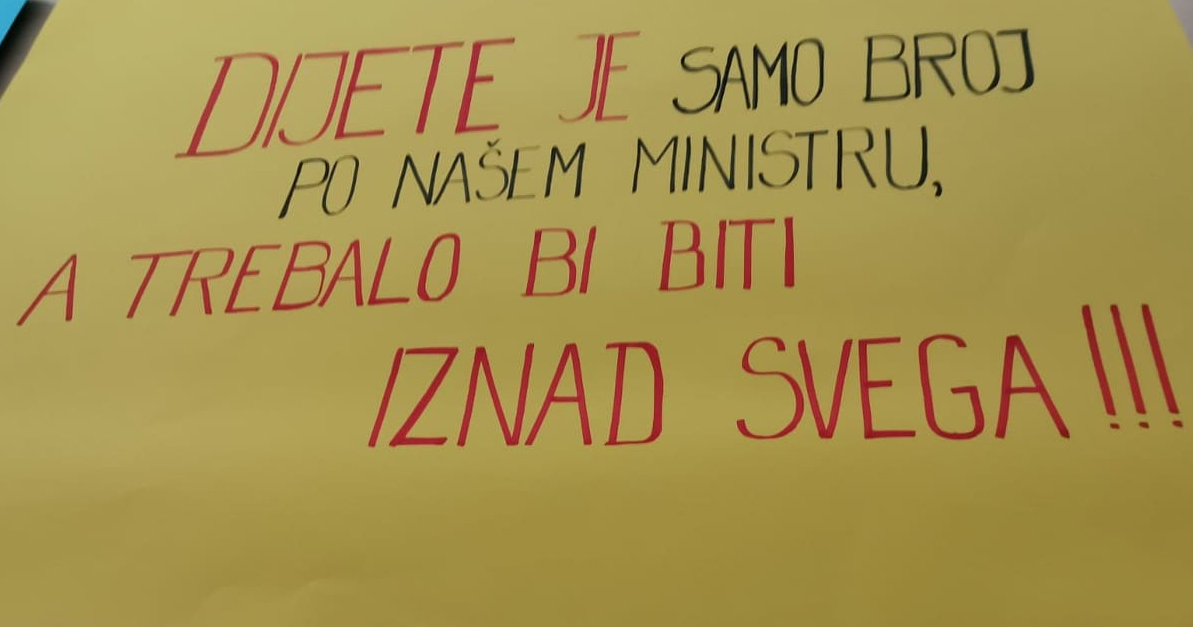 DIJETE JE SAMO BROJ
PO NAŠEM MINISTRU,
A TREBALO BI BITI
IZNAD SVEGA!!!